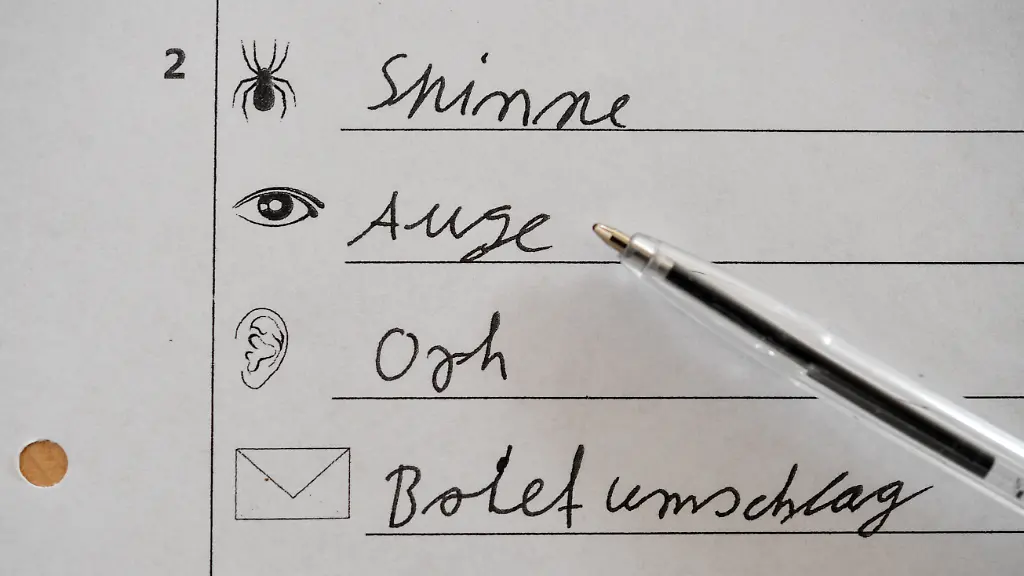 2 Spinne
Auge
Orh
Brief umschlag